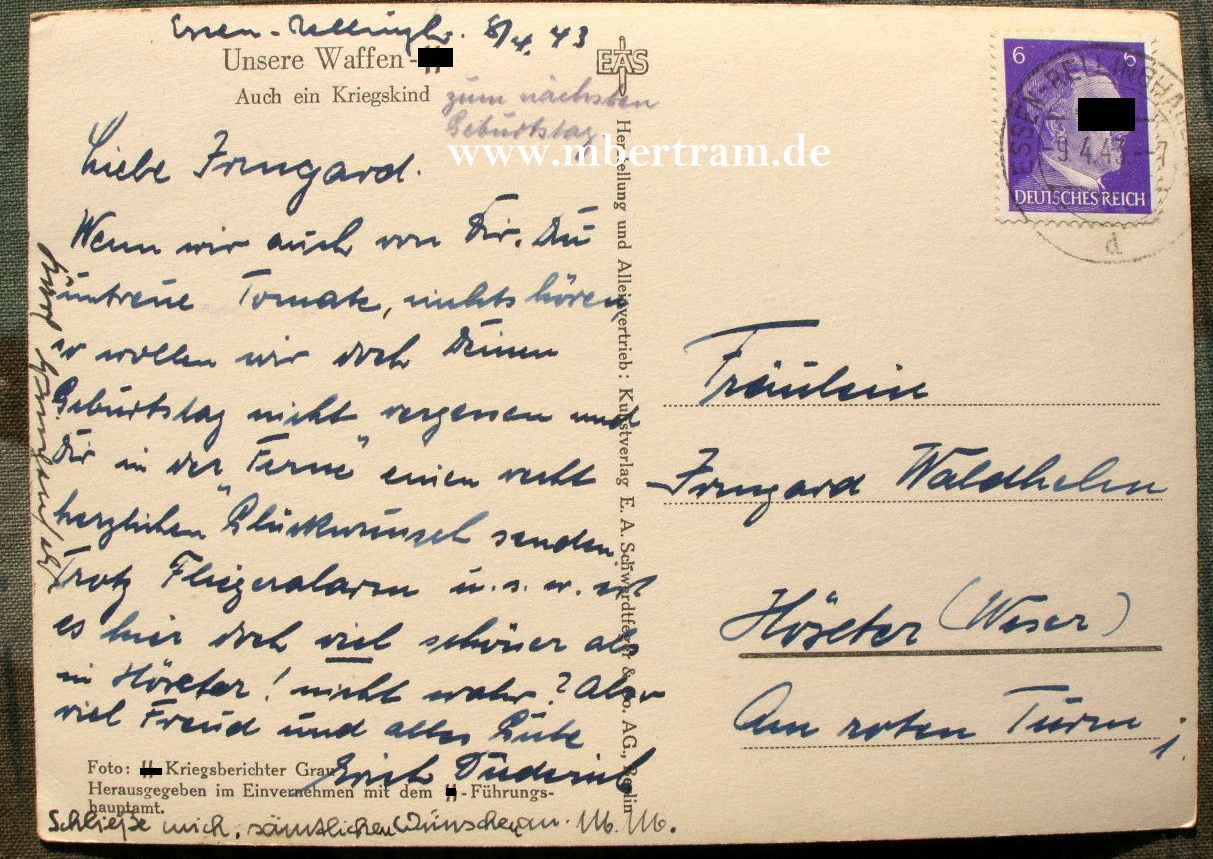 Essen-Rellingh. 8/4. 43
Unsere Waffen-
Auch ein Kriegskind
zum nächsten
Geburtstag
EAS
www.mbertram.de
Liebe Irmgard.
Wenn wir auch von Dir, Du
untreue Tomate, nichts hören,
so wollen wir doch Deinen
Geburtstag nicht vergessen und
Dir in der "Ferne" einen recht
herzlichen Glückwunsch senden.
Trotz Fliegeralarm u. s. w. ist
es hier doch viel schöner als
in Höxter! nicht wahr? Also
viel Freud und alles Gute
Erich
Foto: -Kriegsberichter Grau
Herausgegeben im Einvernehmen mit dem -Führungs-
hauptamt.
Schließe mich sämtlichen Wünschen an. M. M.
Herstellung und Alleinvertrieb: Kunstverlag E. A. Schwerdtfeger & Co. AG., Berlin
6 6
DEUTSCHES REICH
ESSEN-RELLINGHAUSEN
-9.4.43.--7
d
Fräulein
Irmgard Waldhelm
Höxter (Weser)
Am roten Turm